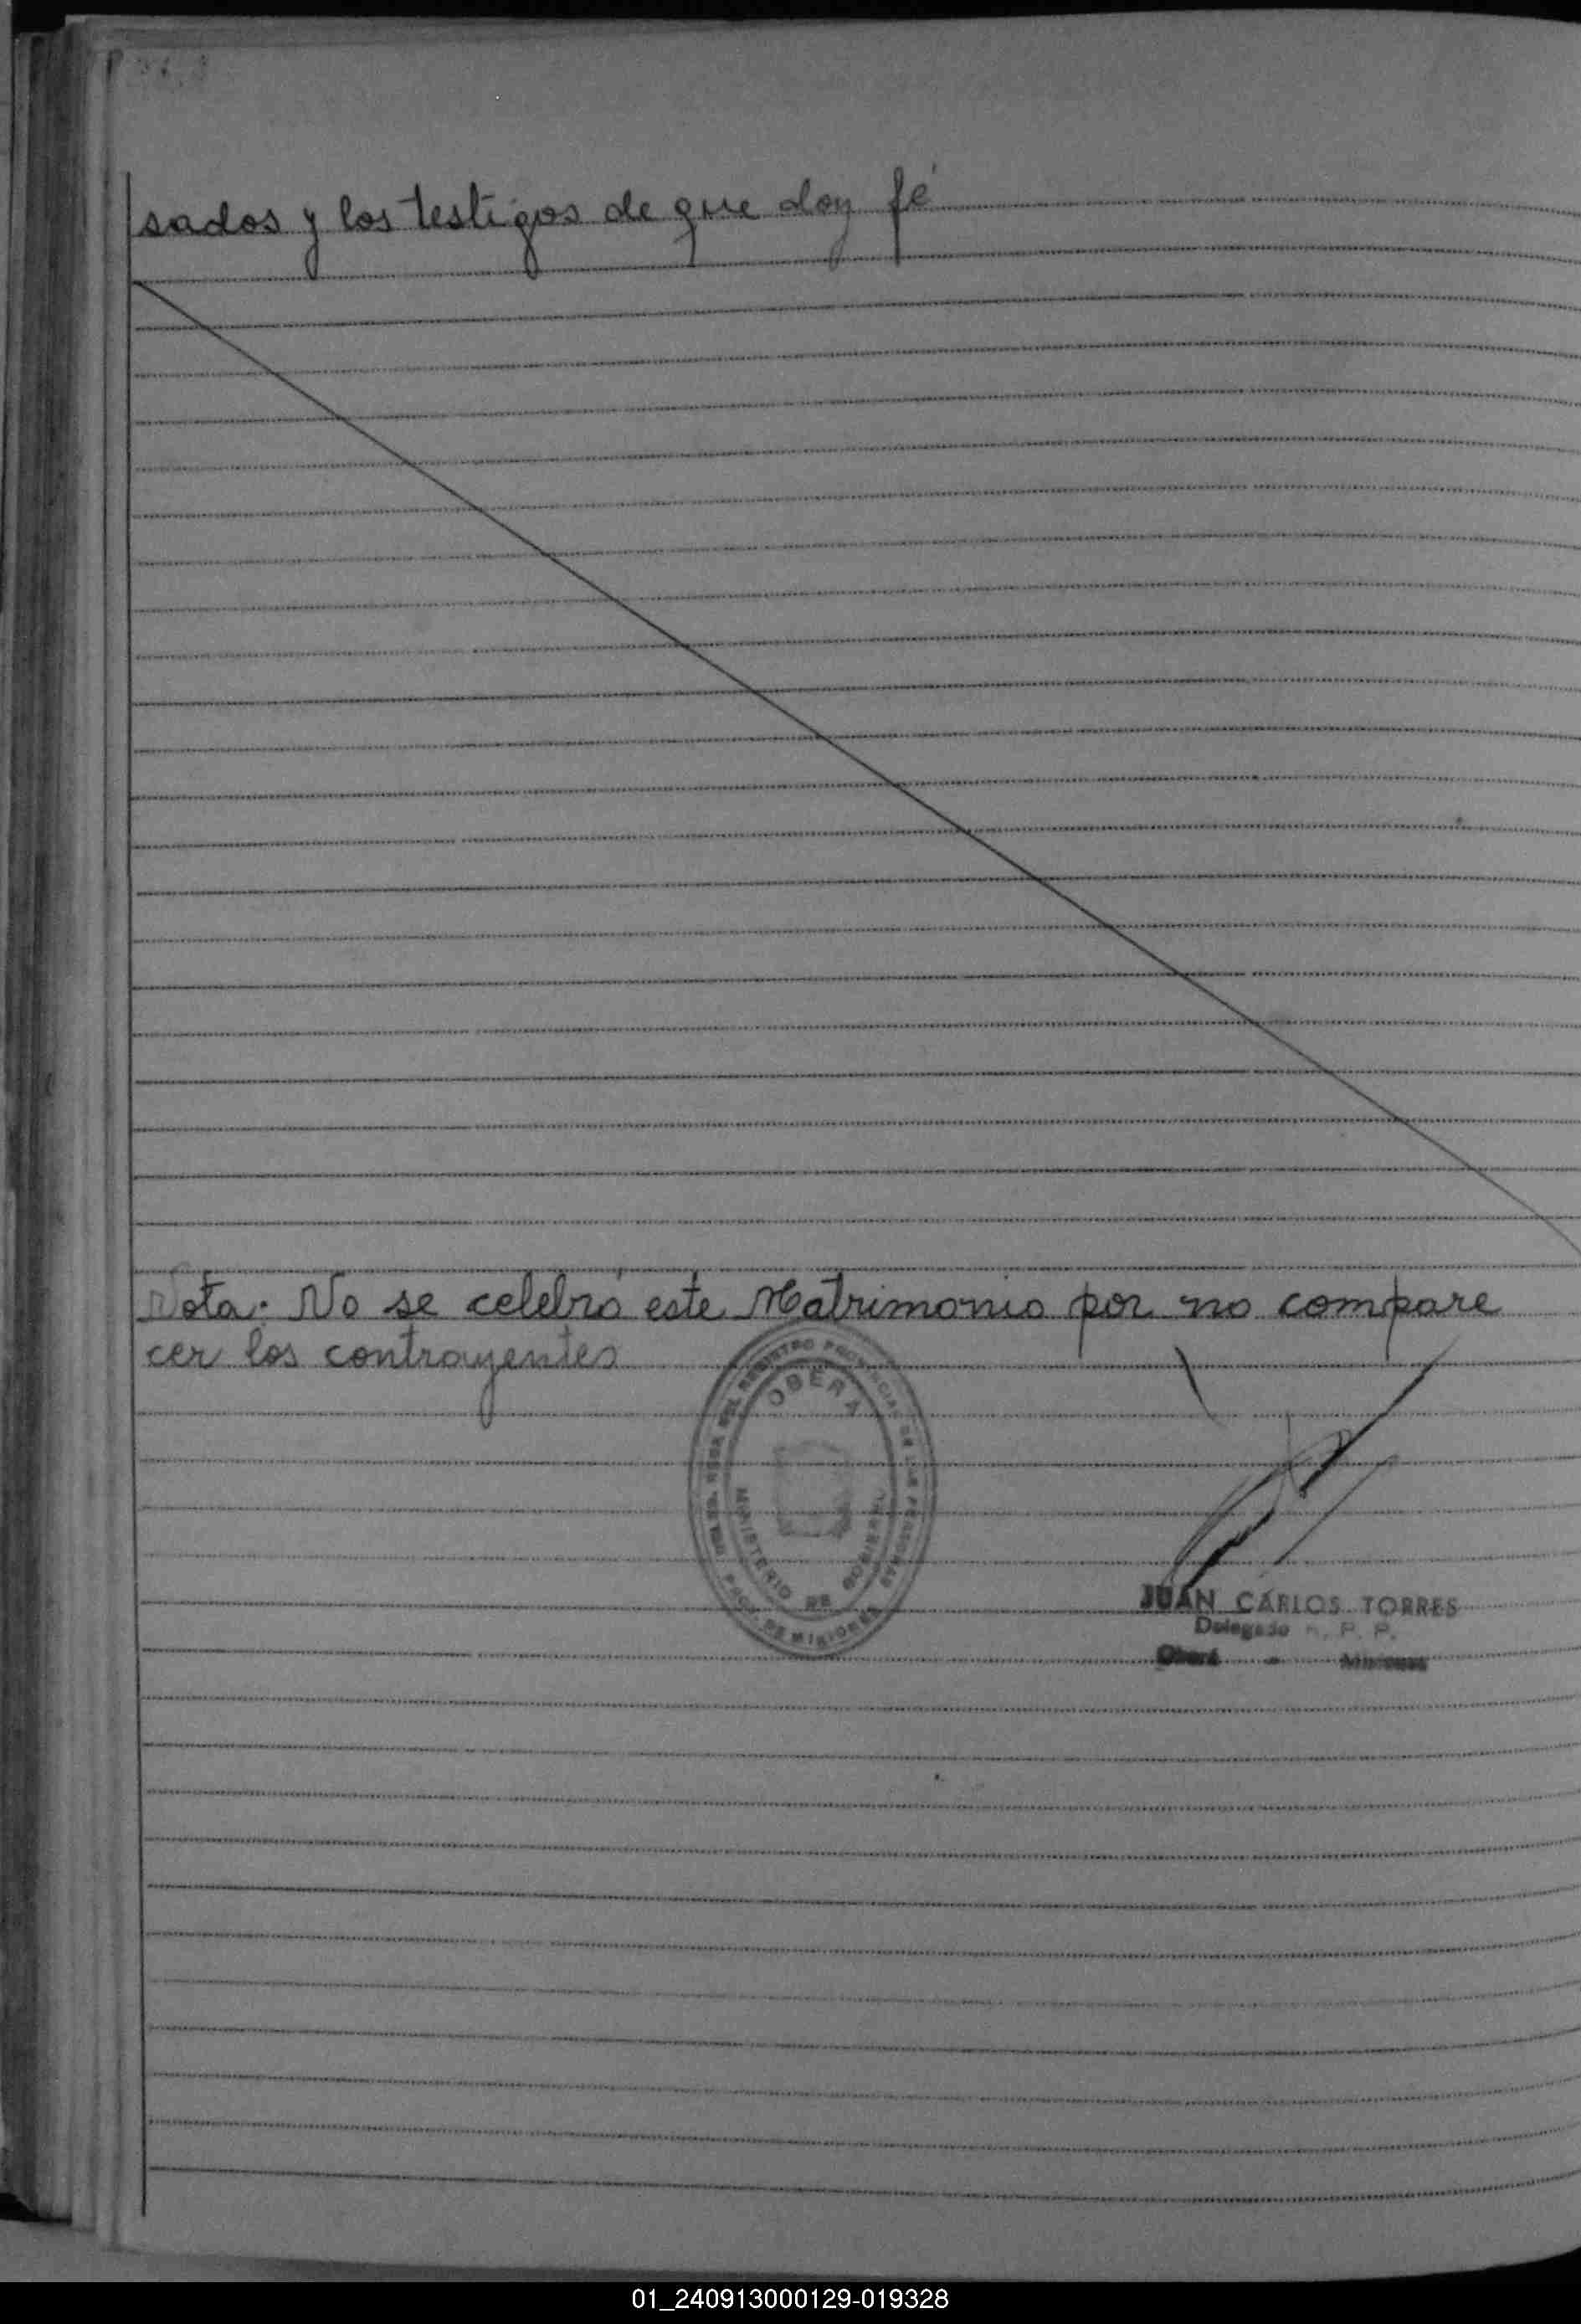 sados y los testigos de que doy fé
Nota: No se celebró este Matrimonio por no compare
cer los contrayentes
OBERA
MINISTERIO DE GOBIERNO
PROV. DE MISIONES
JUAN CARLOS TORRES
Delegado R. P. P.
Oberá - Misiones
01_240913000129-019328